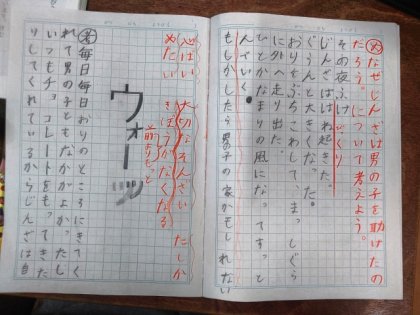 なぜじんざは男の子を助けたの
だろう。について考えよう。
その夜ふけ
じんざははね起きた。
ぐうんと大きくなった。
おりをぶちこわして、まっしぐら
に外へ走り出た。
ひとかたまりの風になってすっと
んでいく。
もしかしたら男の子の家かもしれない
心はい 大切なそんざい たしか
めたい
前よりもっと
ウォーッ
毎日毎日おりのところにきてく
れて男の子ともなかがよかったし
いつもチョコレートをもってきた
りしてくれているからじんざは自